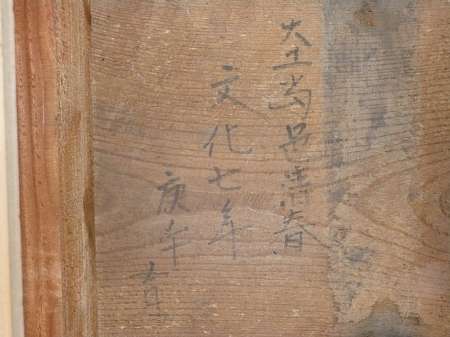 大工当邑清春
文化七年
庚午